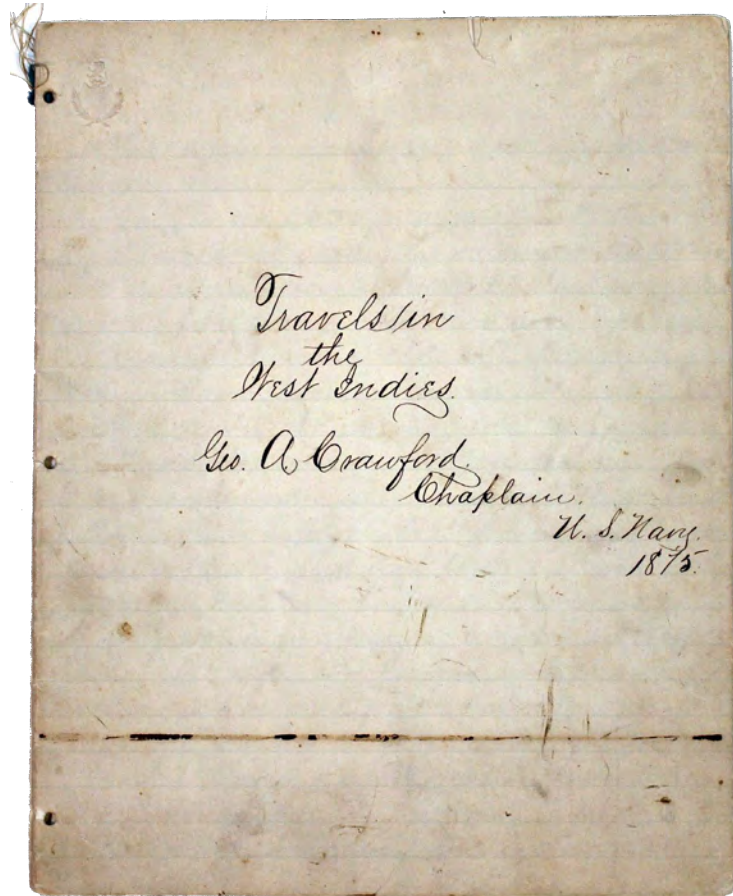 Travels in
the
West Indies.
Geo. A. Crawford.
Chaplain.
U. S. Navy.
1875.